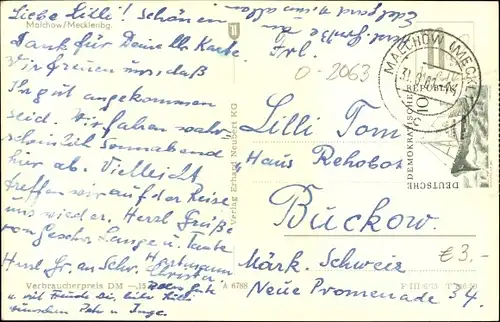 Malchow/Mecklenbg.
Liebe Lilli! Schönen
Dank für Deine Karte.
Wir freuen uns, daß
Ihr gut angekommen
seid. Wir fahren wahr-
scheinlich Sonnabend
hier ab. Vielleicht
treffen wir auf der Reise
uns wieder. Herzl. Grüße
von Geschw. Lange u. Tante
Herzl. Gr. an Schw. Christa
Hartmann
Alles Gute
u. viel Freude Dir, liebe Lilli
wünschen und Inge.
Verbraucherpreis DM —,15
A 6788
Verlag Erhard Neubert KG
Frl.
0-2063
Lilli Tom
Haus Rehobot
Buckow.
Märk. Schweiz
Neue Promenade 34.
MALCHOW (MECKL)
DEUTSCHE
DEMOKRATISCHE
REPUBLIK
10
€3,-